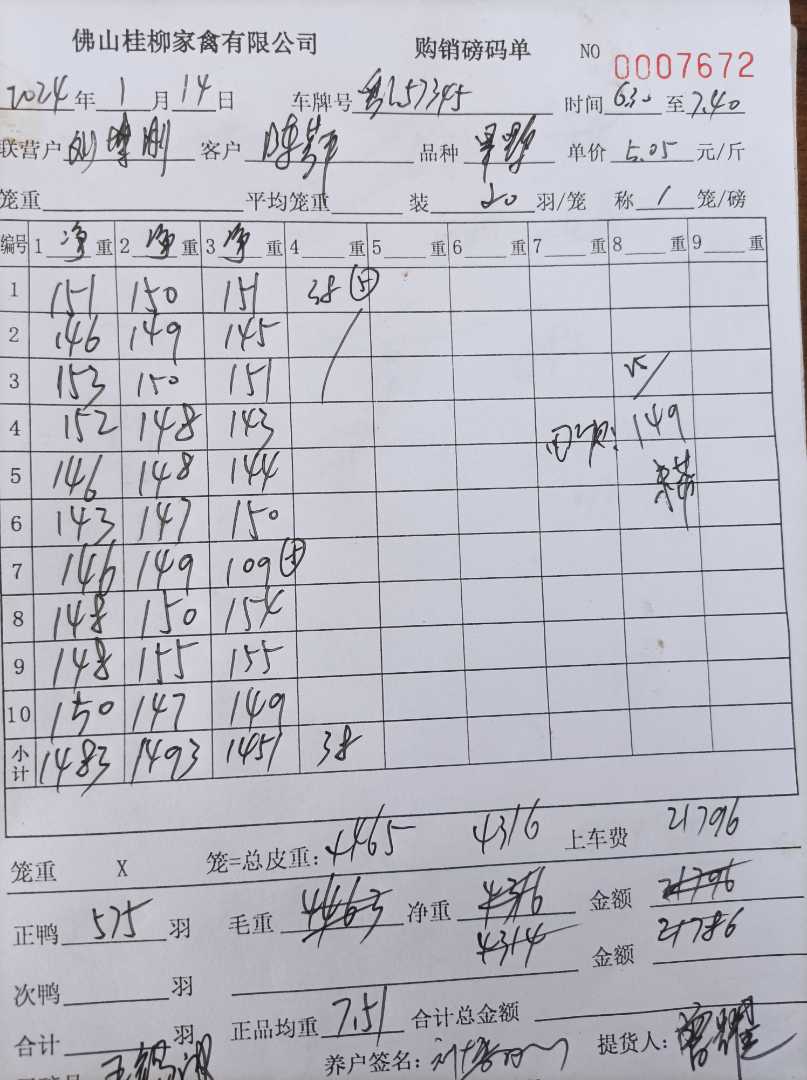 佛山桂柳家禽有限公司 购销磅码单 NO 0007672
2024年1月14日 车牌号 57345 时间 630 至 7.40
联营户 客户 品种 单价 5.05 元/斤
笼重 平均笼重 装 20 羽/笼 称 1 笼/磅
编号 1 净 重 2 净 重 3 净 重 4 重 5 重 6 重 7 重 8 重 9 重
1 151 150 151 38 ⑤
2 146 149 145
3 153 150 151
4 152 148 143 149
5 146 148 144
6 143 147 150
7 146 149 109
8 148 150 154
9 148 155 155
10 150 147 149
小计 1483 1493 1451 38
笼重 X 笼=总皮重: 4465 4316 上车费 21796
正鸭 575 羽 毛重 4463 净重 4316 金额 21796
次鸭 羽 4314 金额 21786
合计 羽 正品均重 7.51 合计总金额
养户签名: 提货人: